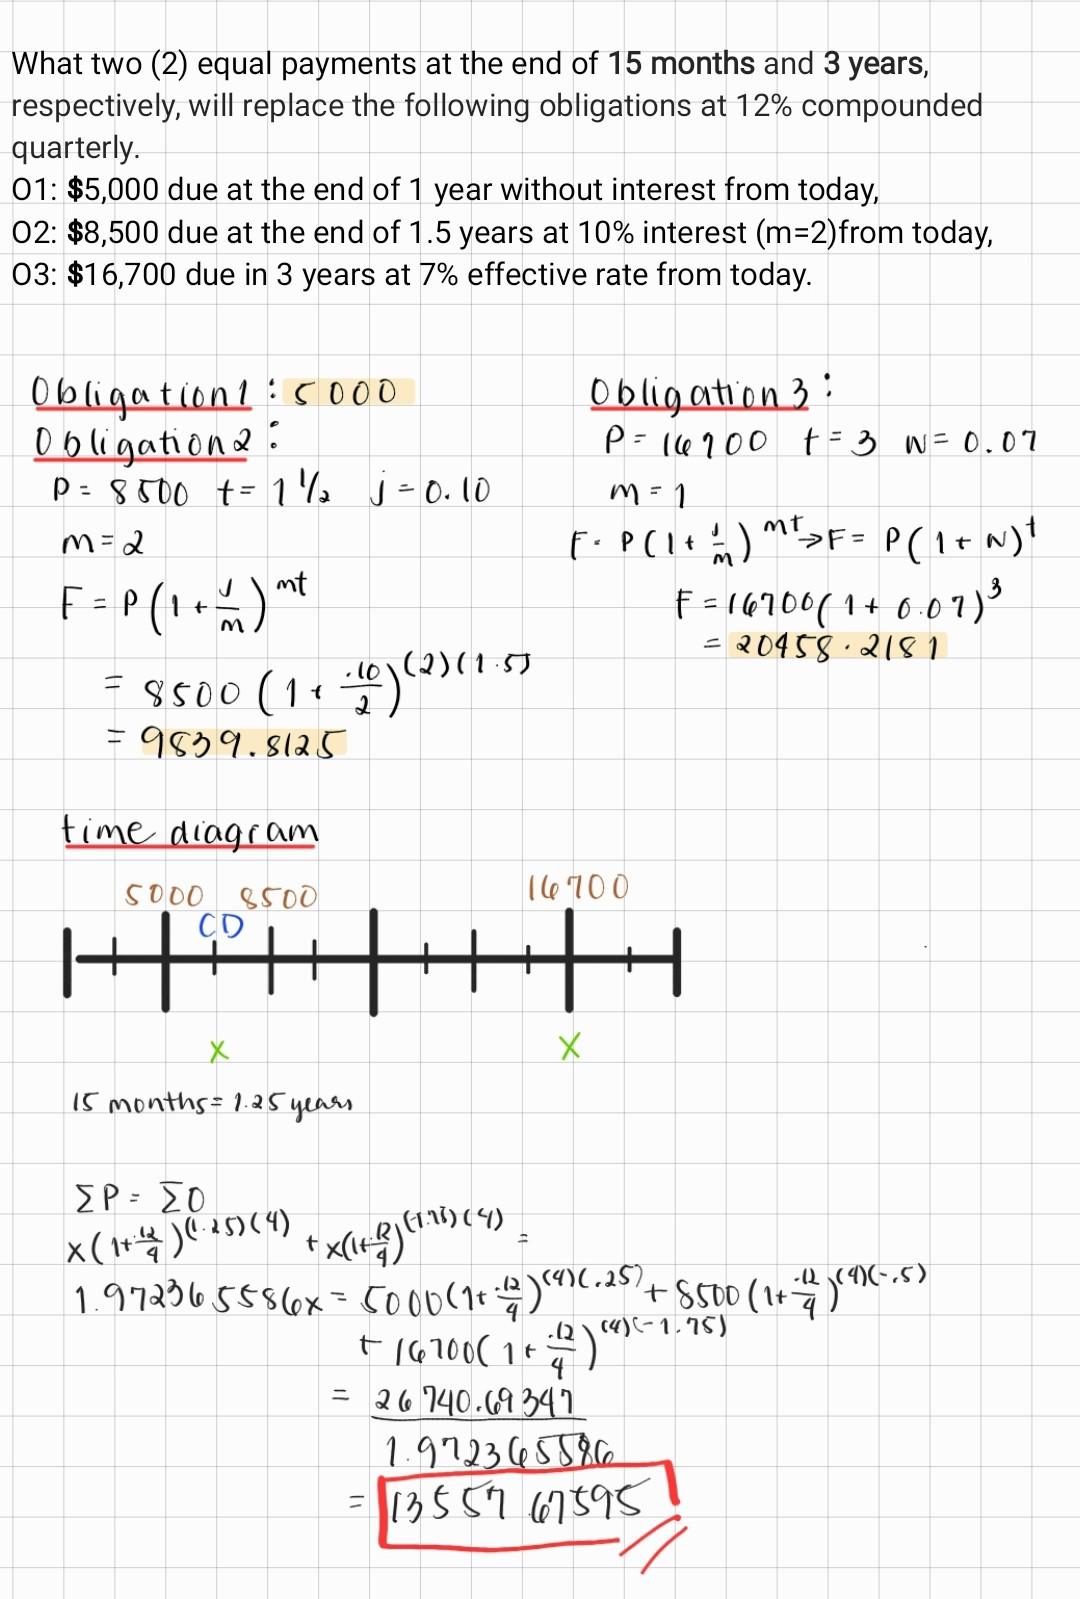 What two (2) equal payments at the end of 15 months and 3 years,
respectively, will replace the following obligations at 12% compounded
quarterly.
O1: $5,000 due at the end of 1 year without interest from today,
O2: $8,500 due at the end of 1.5 years at 10% interest (m=2)from today,
O3: $16,700 due in 3 years at 7% effective rate from today.
Obligation1 : 5000
Obligation2 :
P = 8500 t = 1 1/2 j = 0.10
m = 2
F = P(1 + j/m)^mt
= 8500 (1 + .10/2)^(2)(1.5)
= 9839.8125
Obligation 3 :
P = 16700 t = 3 W = 0.07
m = 1
F = P(1 + j/m)^mt → F = P(1 + W)^t
F = 16700(1 + 0.07)^3
= 20458.2181
time diagram
5000 8500 16700
CD
X X
15 months = 1.25 years
ΣP = ΣO
x(1+.12/4)^(1.25)(4) + x(1+.12/4)^(-1.75)(4) =
1.972365586x = 5000(1+.12/4)^(4)(.25) + 8500(1+.12/4)^(4)(-.5)
+ 16700(1+.12/4)^(4)(-1.75)
= 26740.69347
1.972365586
= 13557.67595